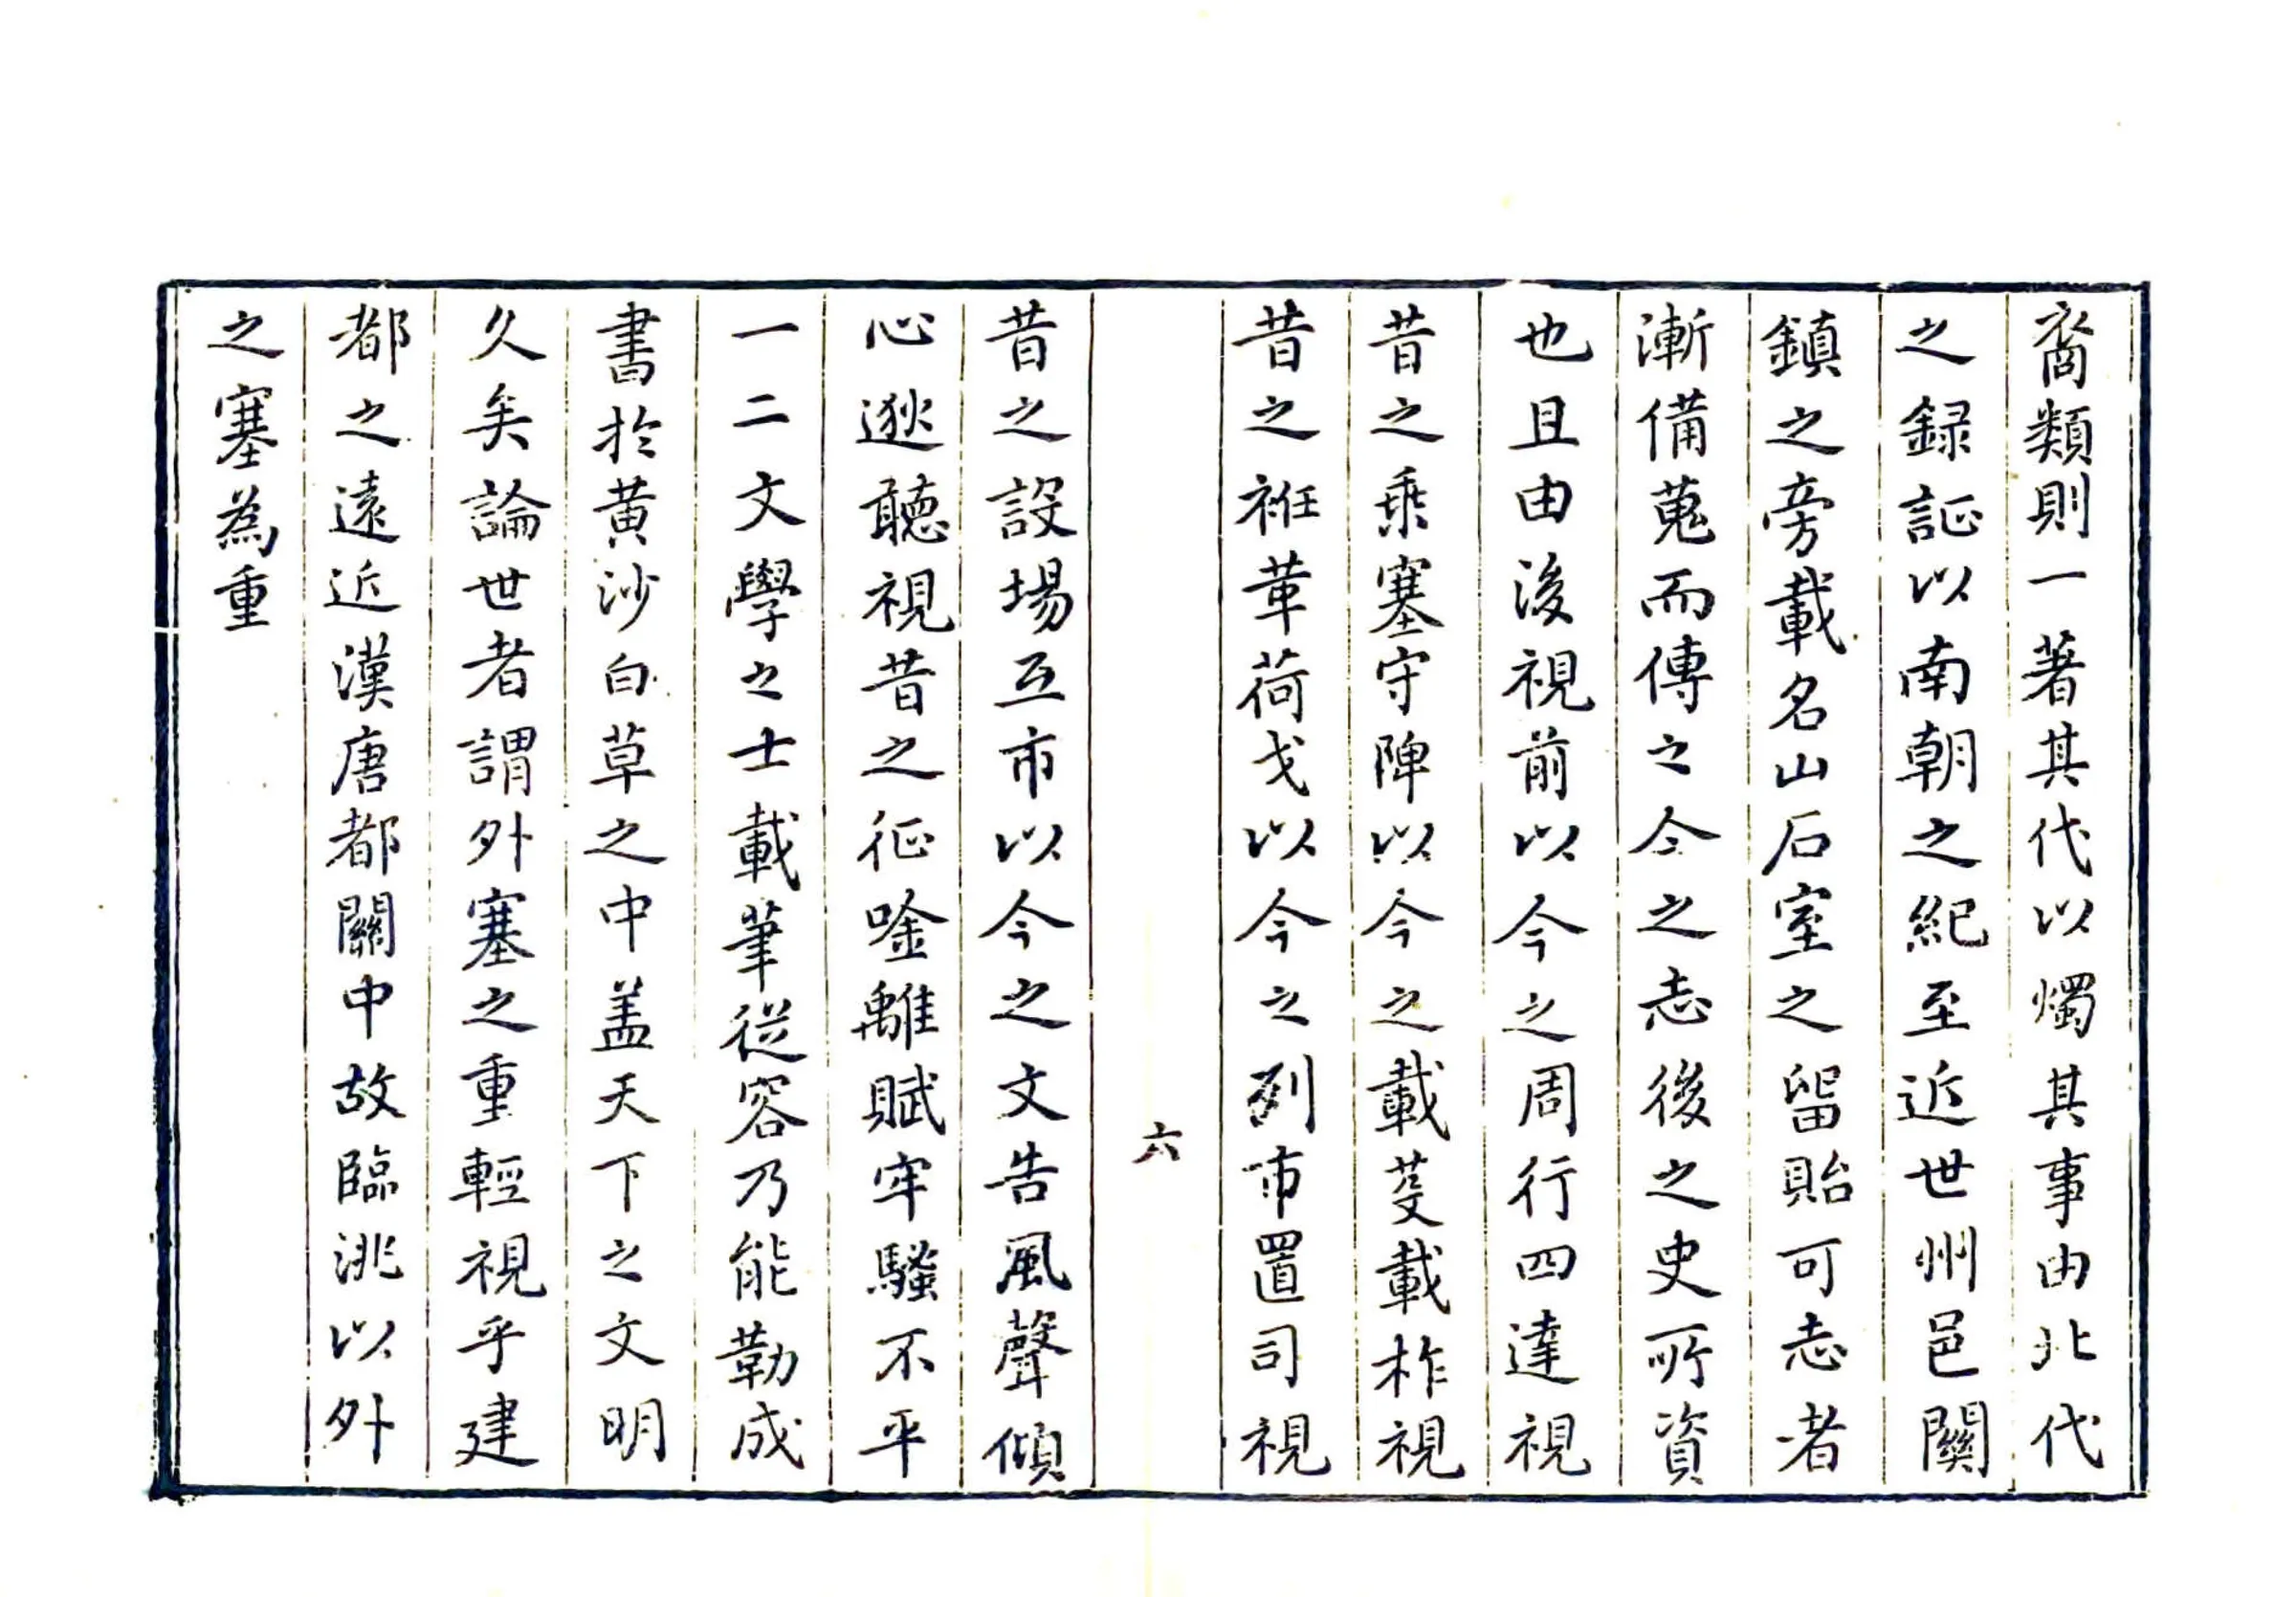 裔類則一著其代以燭其事由北代
之録証以南朝之紀至近世州邑關
鎮之旁載名山石室之留貽可志者
漸備蒐而傳之今之志後之史所資
也且由後視前以今之周行四達視
昔之乗塞守陴以今之載芟載柞視
昔之袵革荷戈以今之列市置司視
六
昔之設場互市以今之文告風聲傾
心逖聽視昔之征唫離賦牢騷不平
一二文學之士載筆從容乃能勒成
書於黄沙白草之中盖天下之文明
久矣論世者謂外塞之重輕視乎建
都之遠近漢唐都關中故臨洮以外
之塞為重